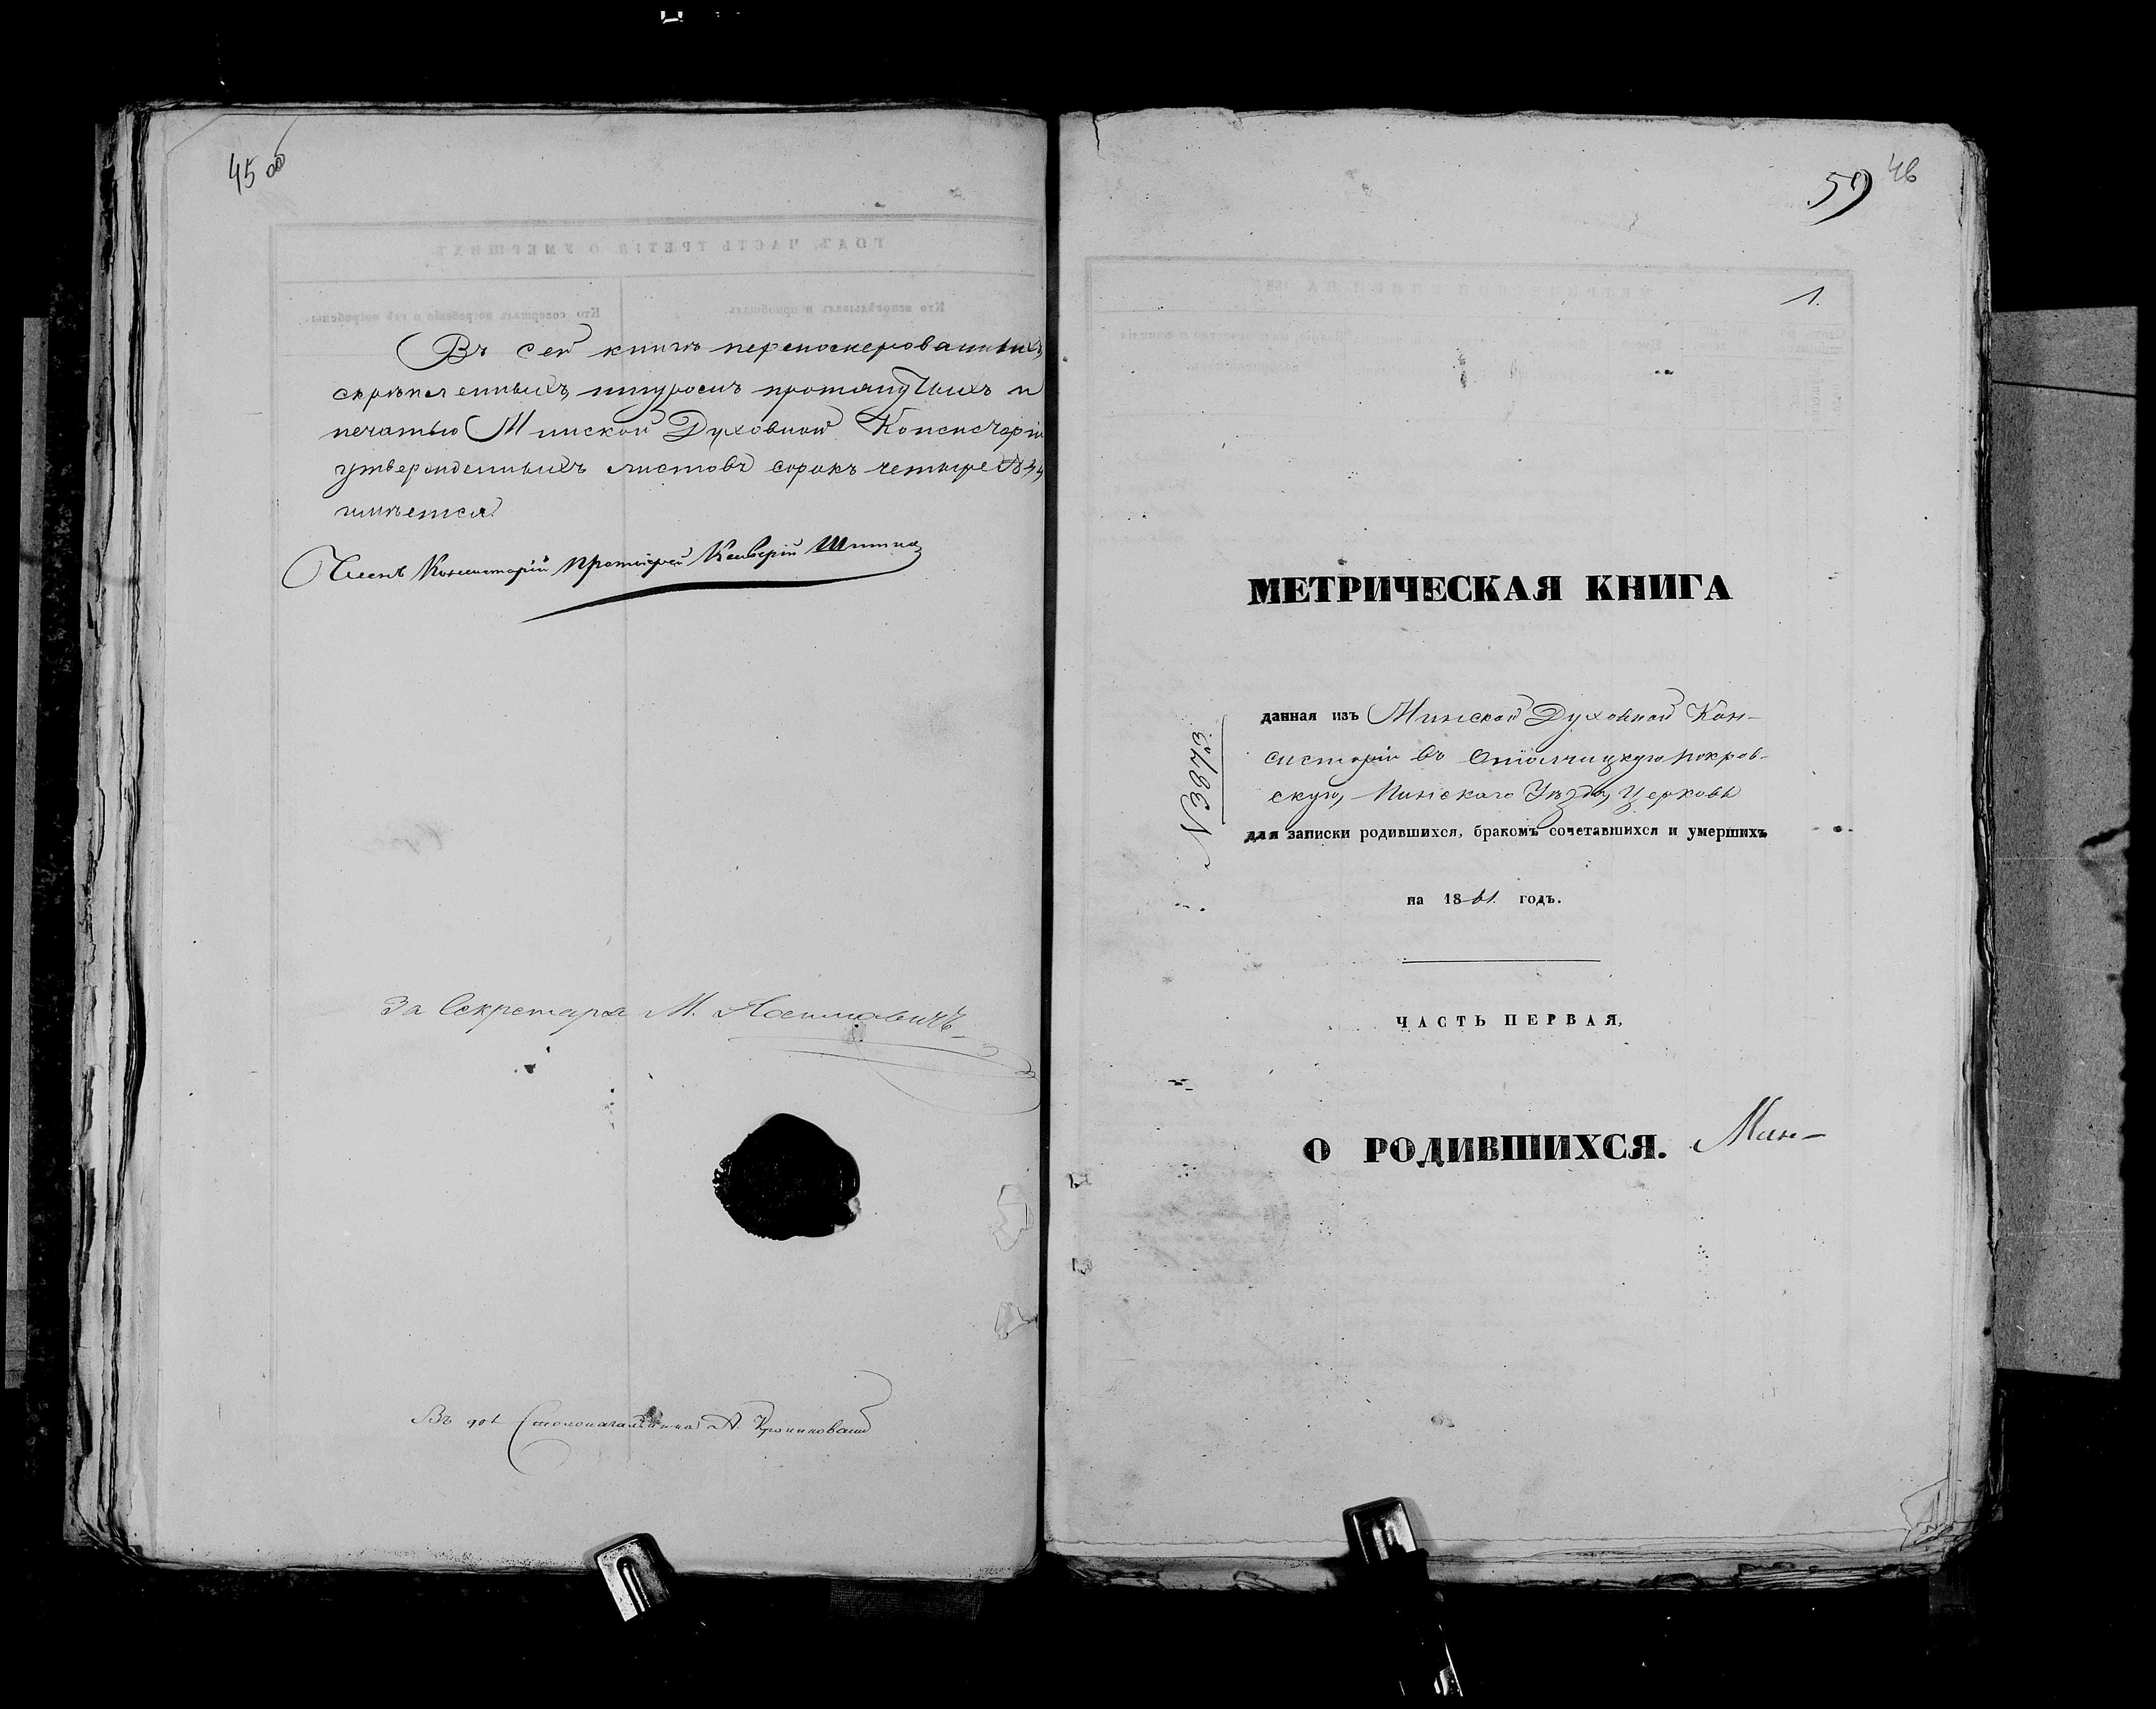 45 об
Въ сей книгѣ перенумерованныхъ,
скрѣпленныхъ, шнуромъ протянутыхъ и
печатью Минской Духовной Консисторіи
утвержденныхъ листовъ сорокъ четыре
имѣется.
Членъ Консисторіи Протоіерей
За Секретаря М.
Въ дол. Столоначальника А.
59 46
1.
МЕТРИЧЕСКАЯ КНИГА
N 3873
данная изъ Минской Духовной Кон-
систоріи въ покров-
скую, Пинскаго Уѣзда, Церковь
для записки родившихся, бракомъ сочетавшихся и умершихъ
на 1861 годъ.
ЧАСТЬ ПЕРВАЯ,
О РОДИВШИХСЯ. Мин-